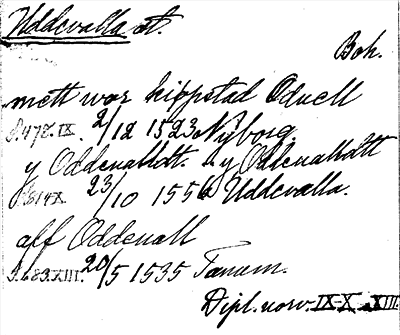 Uddevalla st.
Boh.
mett wor kippstad Oduell
S.478.IX. 2/12 1523 Nyborg
y Oddeualldt. y Oddeualldtt
S.814X. 23/10 1556 Uddevalla.
aff Oddeuall
S.683.XIII. 20/5 1535 Tanum.
Dipl. norv. IX-X XIII